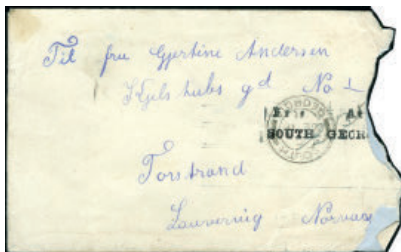 Til fru Gjertine Andersen
gd No 1
SOUTH GEOR
Torstrand
Laurvig Norvag